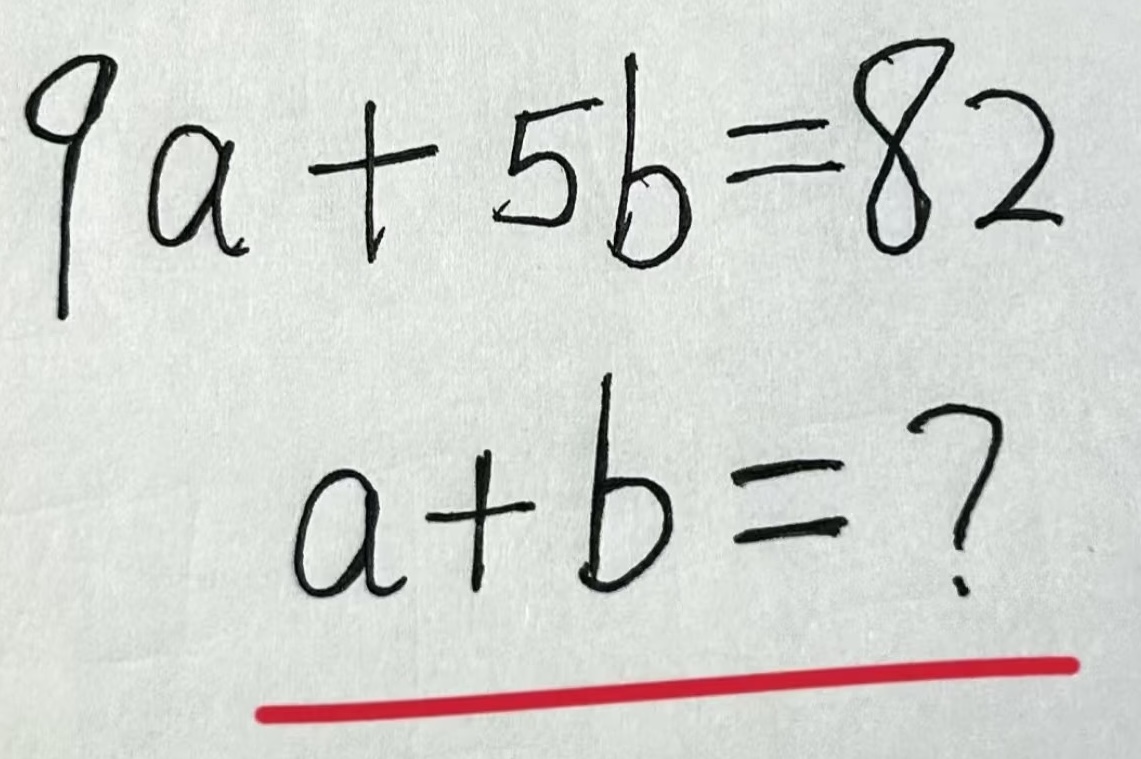 9a+5b=82
a+b=?